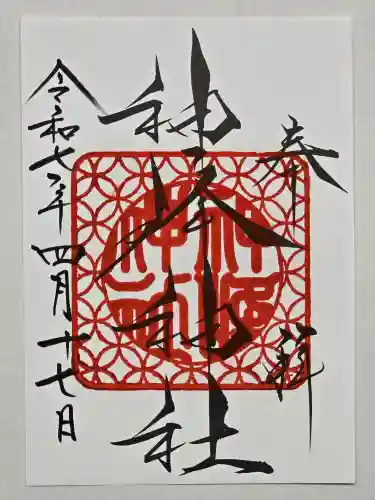 奉拝
神峯神社
令和七年四月十七日